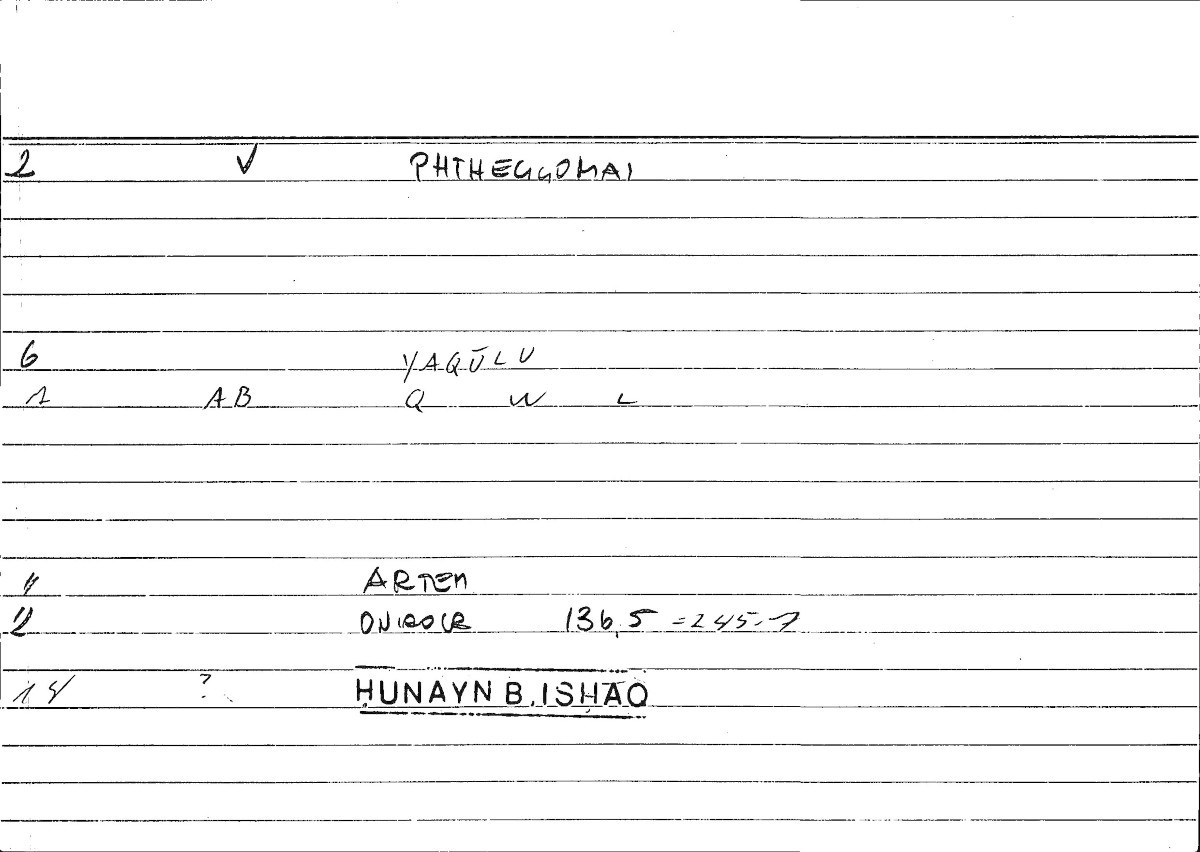 2 V PHTHEGGOMAI
6 YAQŪLU
1 AB Q W L
11 ARTEM
12 ONIROCR 136,5 = 245.7
14 ? ḤUNAYN B. ISḤĀQ